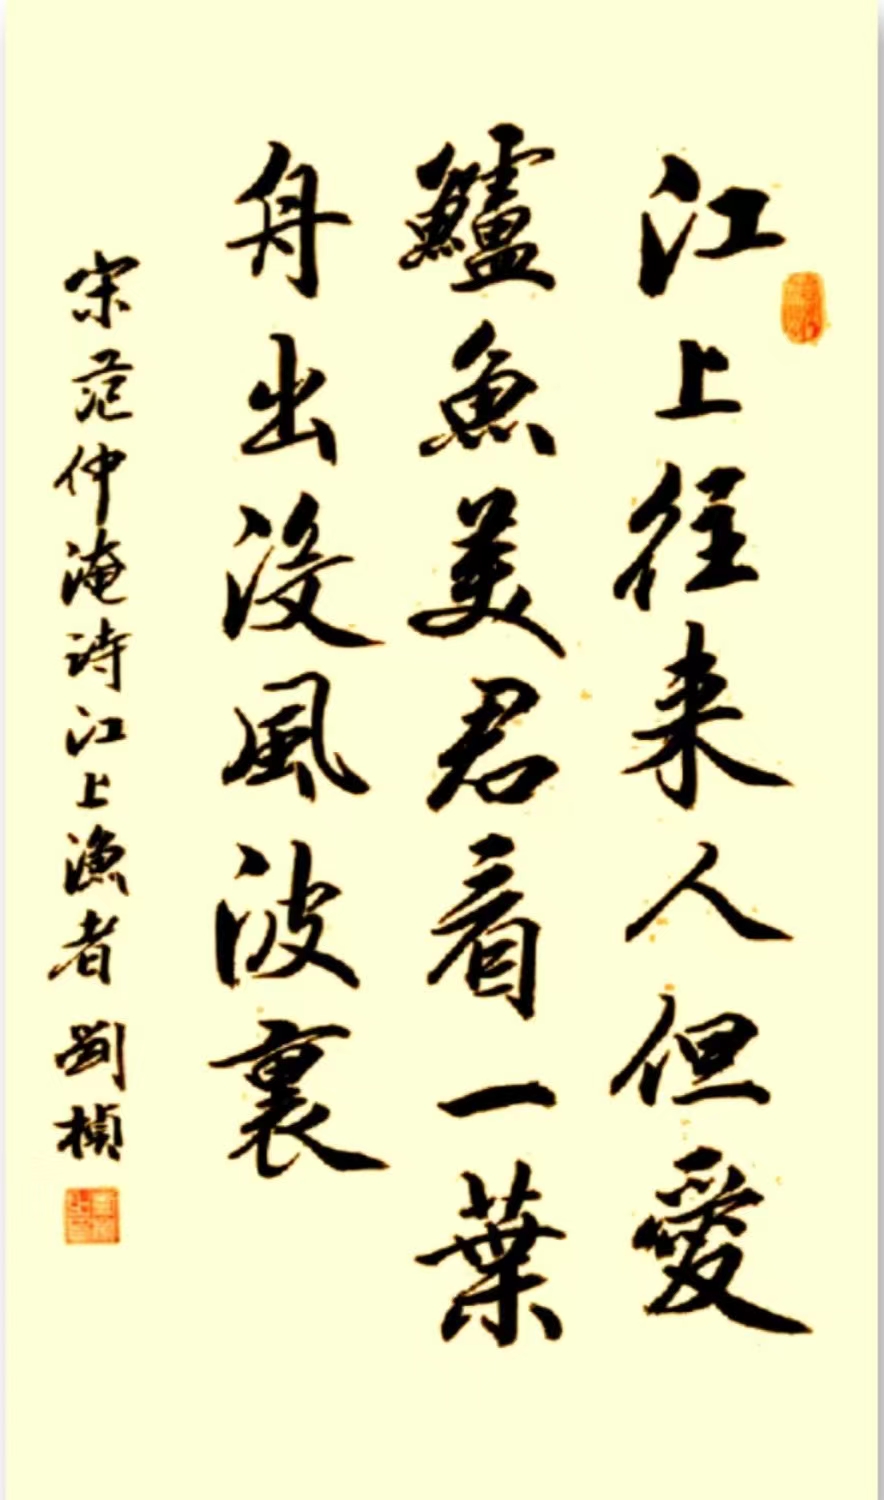 江上往来人但愛
鱸魚美君看一葉
舟出没風波裏
宋范仲淹诗江上漁者 劉楨